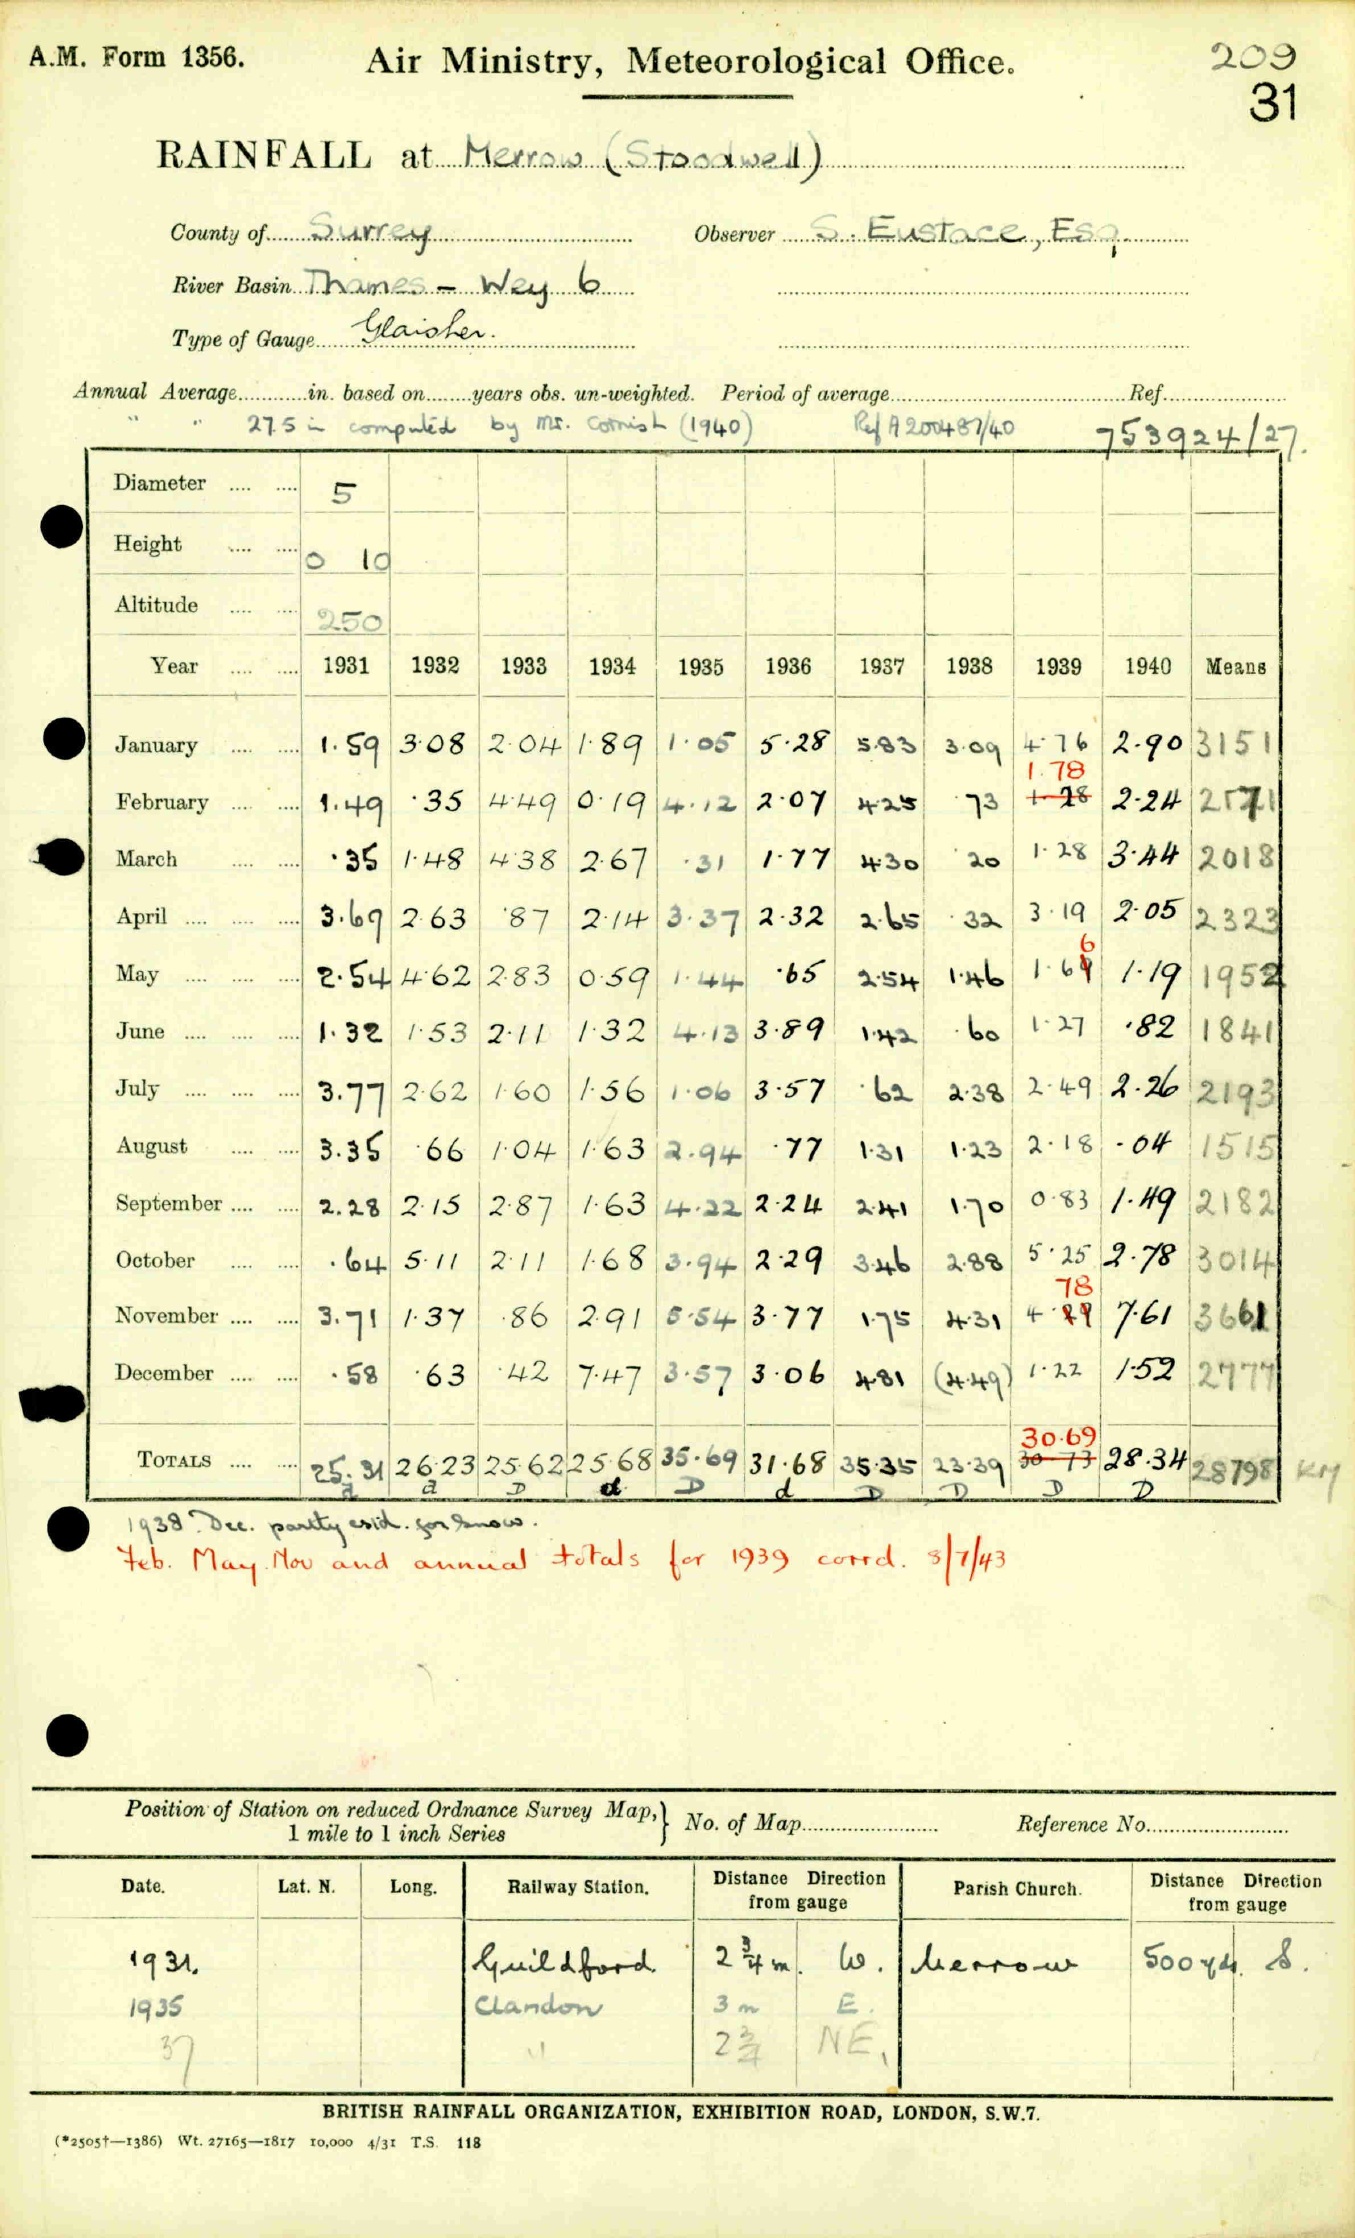 A.M. Form 1356.
Air Ministry, Meteorological Office.
209
31
RAINFALL at Merrow (Stoodwell)
County of Surrey Observer S. Eustace, Esq.
River Basin Thames - Wey 6
Type of Gauge Glaisher.
Annual Average in. based on years obs. un-weighted. Period of average Ref.
" " 27.5 in computed by Mr. Cornish (1940) Ref A200487/40 753924/27.
Diameter 5
Height 0 10
Altitude 250
Year 1931 1932 1933 1934 1935 1936 1937 1938 1939 1940 Means
January 1.59 3.08 2.04 1.89 1.05 5.28 5.83 3.09 4.76 2.90 3151
1.78
February 1.49 .35 4.49 0.19 4.12 2.07 4.25 .73 1.28 2.24 2171
March .35 1.48 4.38 2.67 .31 1.77 4.30 .20 1.28 3.44 2018
April 3.69 2.63 .87 2.14 3.37 2.32 2.65 .32 3.19 2.05 2323
6
May 2.54 4.62 2.83 0.59 1.44 .65 2.54 1.46 1.69 1.19 1952
June 1.32 1.53 2.11 1.32 4.13 3.89 1.42 .60 1.27 .82 1841
July 3.77 2.62 1.60 1.56 1.06 3.57 .62 2.38 2.49 2.26 2193
August 3.35 .66 1.04 1.63 2.94 .77 1.31 1.23 2.18 .04 1515
September 2.28 2.15 2.87 1.63 4.22 2.24 2.41 1.70 0.83 1.49 2182
October .64 5.11 2.11 1.68 3.94 2.29 3.46 2.88 5.25 2.78 3014
78
November 3.71 1.37 .86 2.91 5.54 3.77 1.75 4.31 4. 7.61 3661
December .58 .63 .42 7.47 3.57 3.06 4.81 (4.49) 1.22 1.52 2777
30.69
TOTALS 25.31 26.23 25.62 25.68 35.69 31.68 35.35 23.39 30.73 28.34 28798
d d D d D d D D D D
1938. Dec. partly estd. for snow.
Feb. May. Nov and annual totals for 1939 corrd. 3/7/43
Position of Station on reduced Ordnance Survey Map, 1 mile to 1 inch Series } No. of Map Reference No.
Date. Lat. N. Long. Railway Station. Distance Direction from gauge Parish Church. Distance Direction from gauge
1931. Guildford 2 3/4 m. W. Merrow 500 yds. S.
1935 Clandon 3 m E.
37 " 2 3/4 NE.
BRITISH RAINFALL ORGANIZATION, EXHIBITION ROAD, LONDON, S.W.7.
(*2505†—1386) Wt. 27165—1817 10,000 4/31 T.S. 118